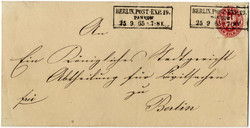 BERLIN, POST-EXP. 19.
PANKOW
25 9 65 * 7-8 N.
BERLIN, POST-EXP. 19.
25 9
An
Ein Königliches Stadtgericht
Abtheilung für
frei
Berlin